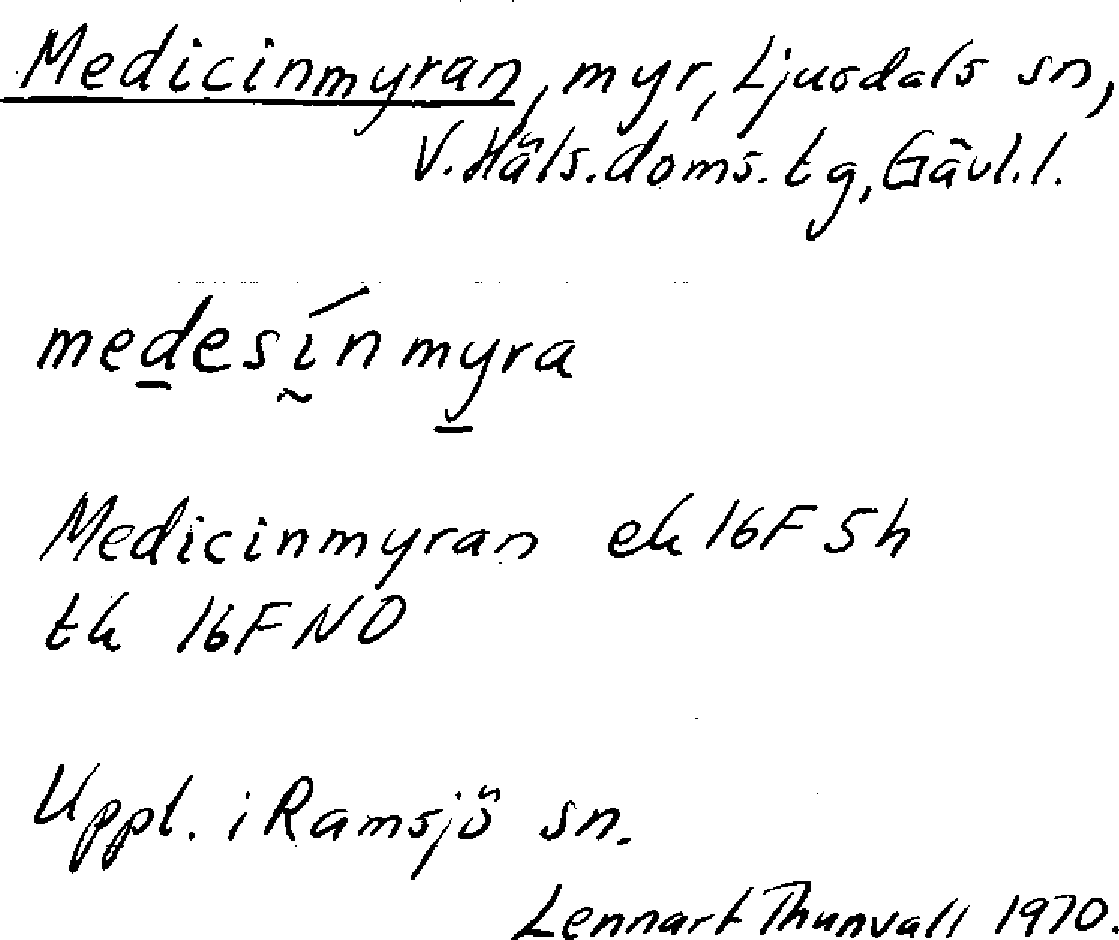 Medicinmyran, myr, Ljusdals sn,
V. Häls. doms. tg, Gävl. l.
medesínmyra
Medicinmyran ek 16F 5h
tk 16F NO
Uppl. i Ramsjö sn.
Lennart Thunvall 1970.